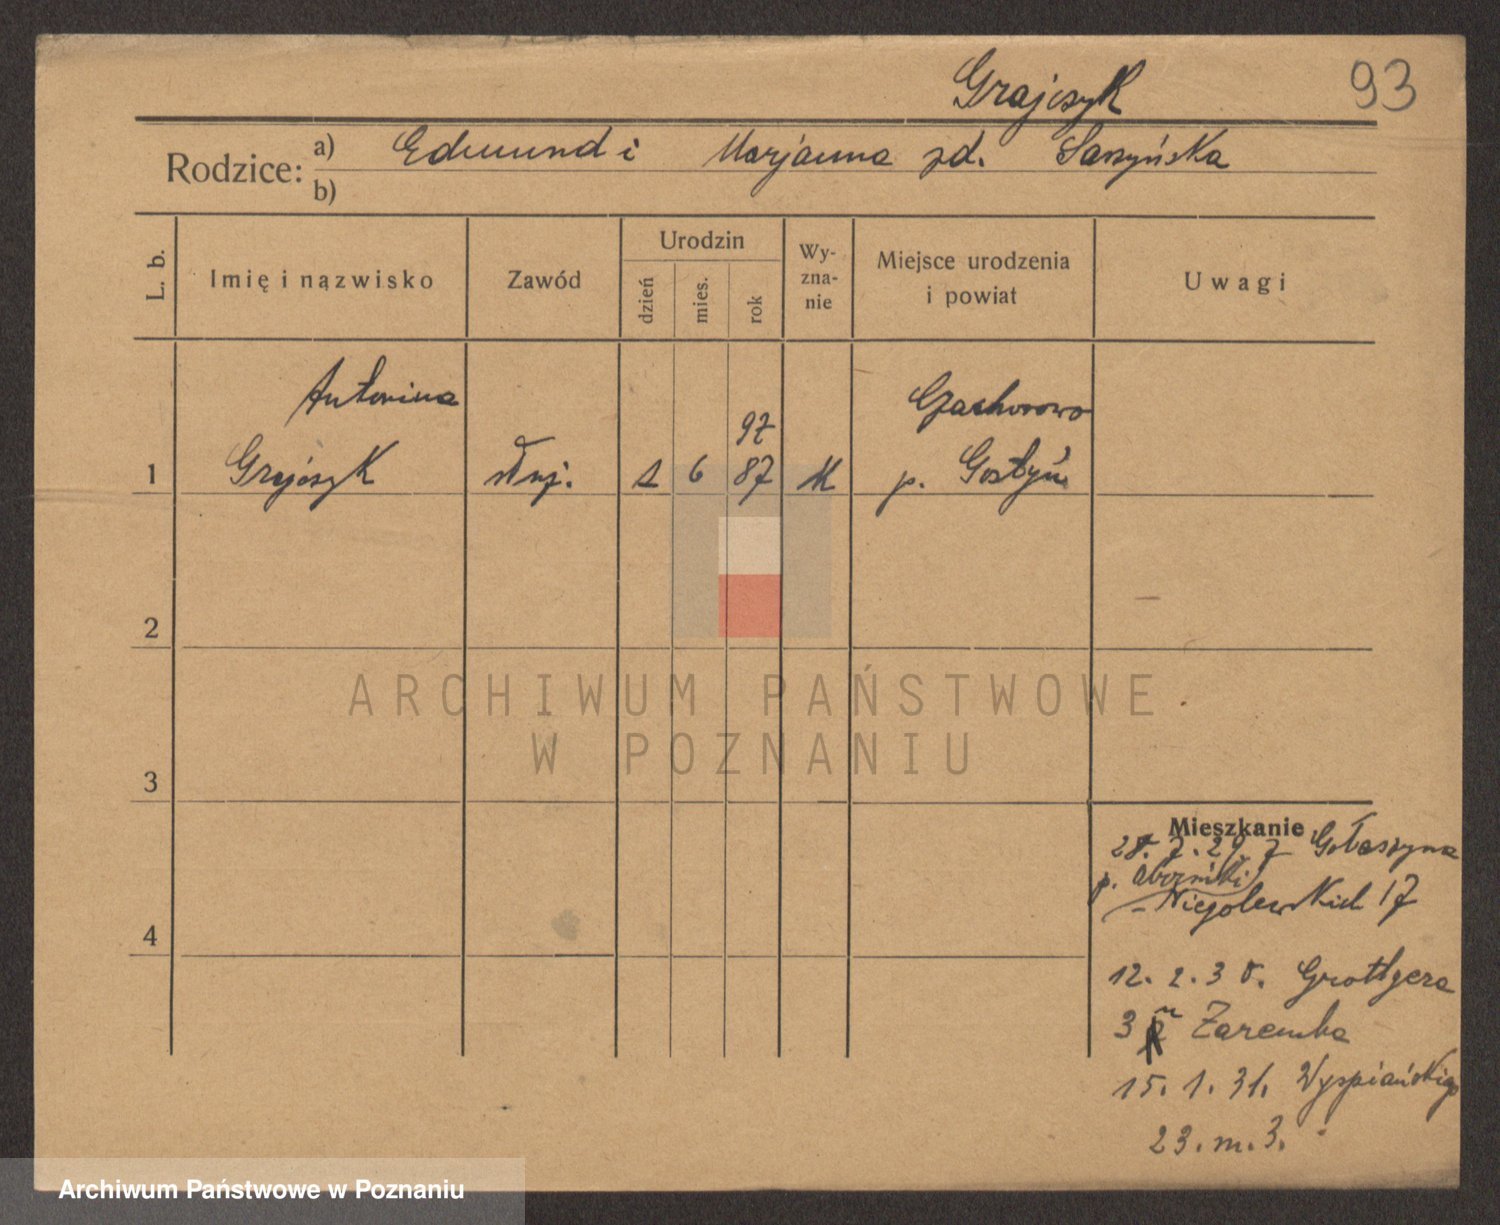 Grajczyk 93
Rodzice: a) Edmund i Marjanna zd. Saszyńska
b)
L. b. Imię i nazwisko Zawód Urodzin dzień mies. rok Wy-zna-nie Miejsce urodzenia i powiat Uwagi
Antonina Czachorowo
97
1 Grajczyk służ. 1 6 87 k p. Gostyń
2
ARCHIWUM PAŃSTWOWE
W POZNANIU
3
Mieszkanie
7. 29 z Gołaszyna
p. Obornicki
- Niegolewskich 17
4
12. 2. 30. Grottgera
3 Zaremba
15. 1. 31. Wyspiańskiego
23. m. 3.
Archiwum Państwowe w Poznaniu